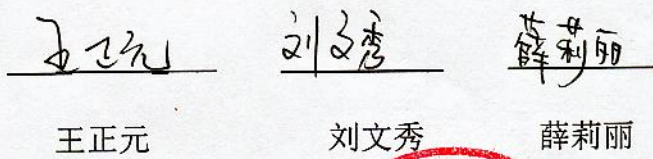 王正元 刘文秀 薛莉丽
王正元 刘文秀 薛莉丽